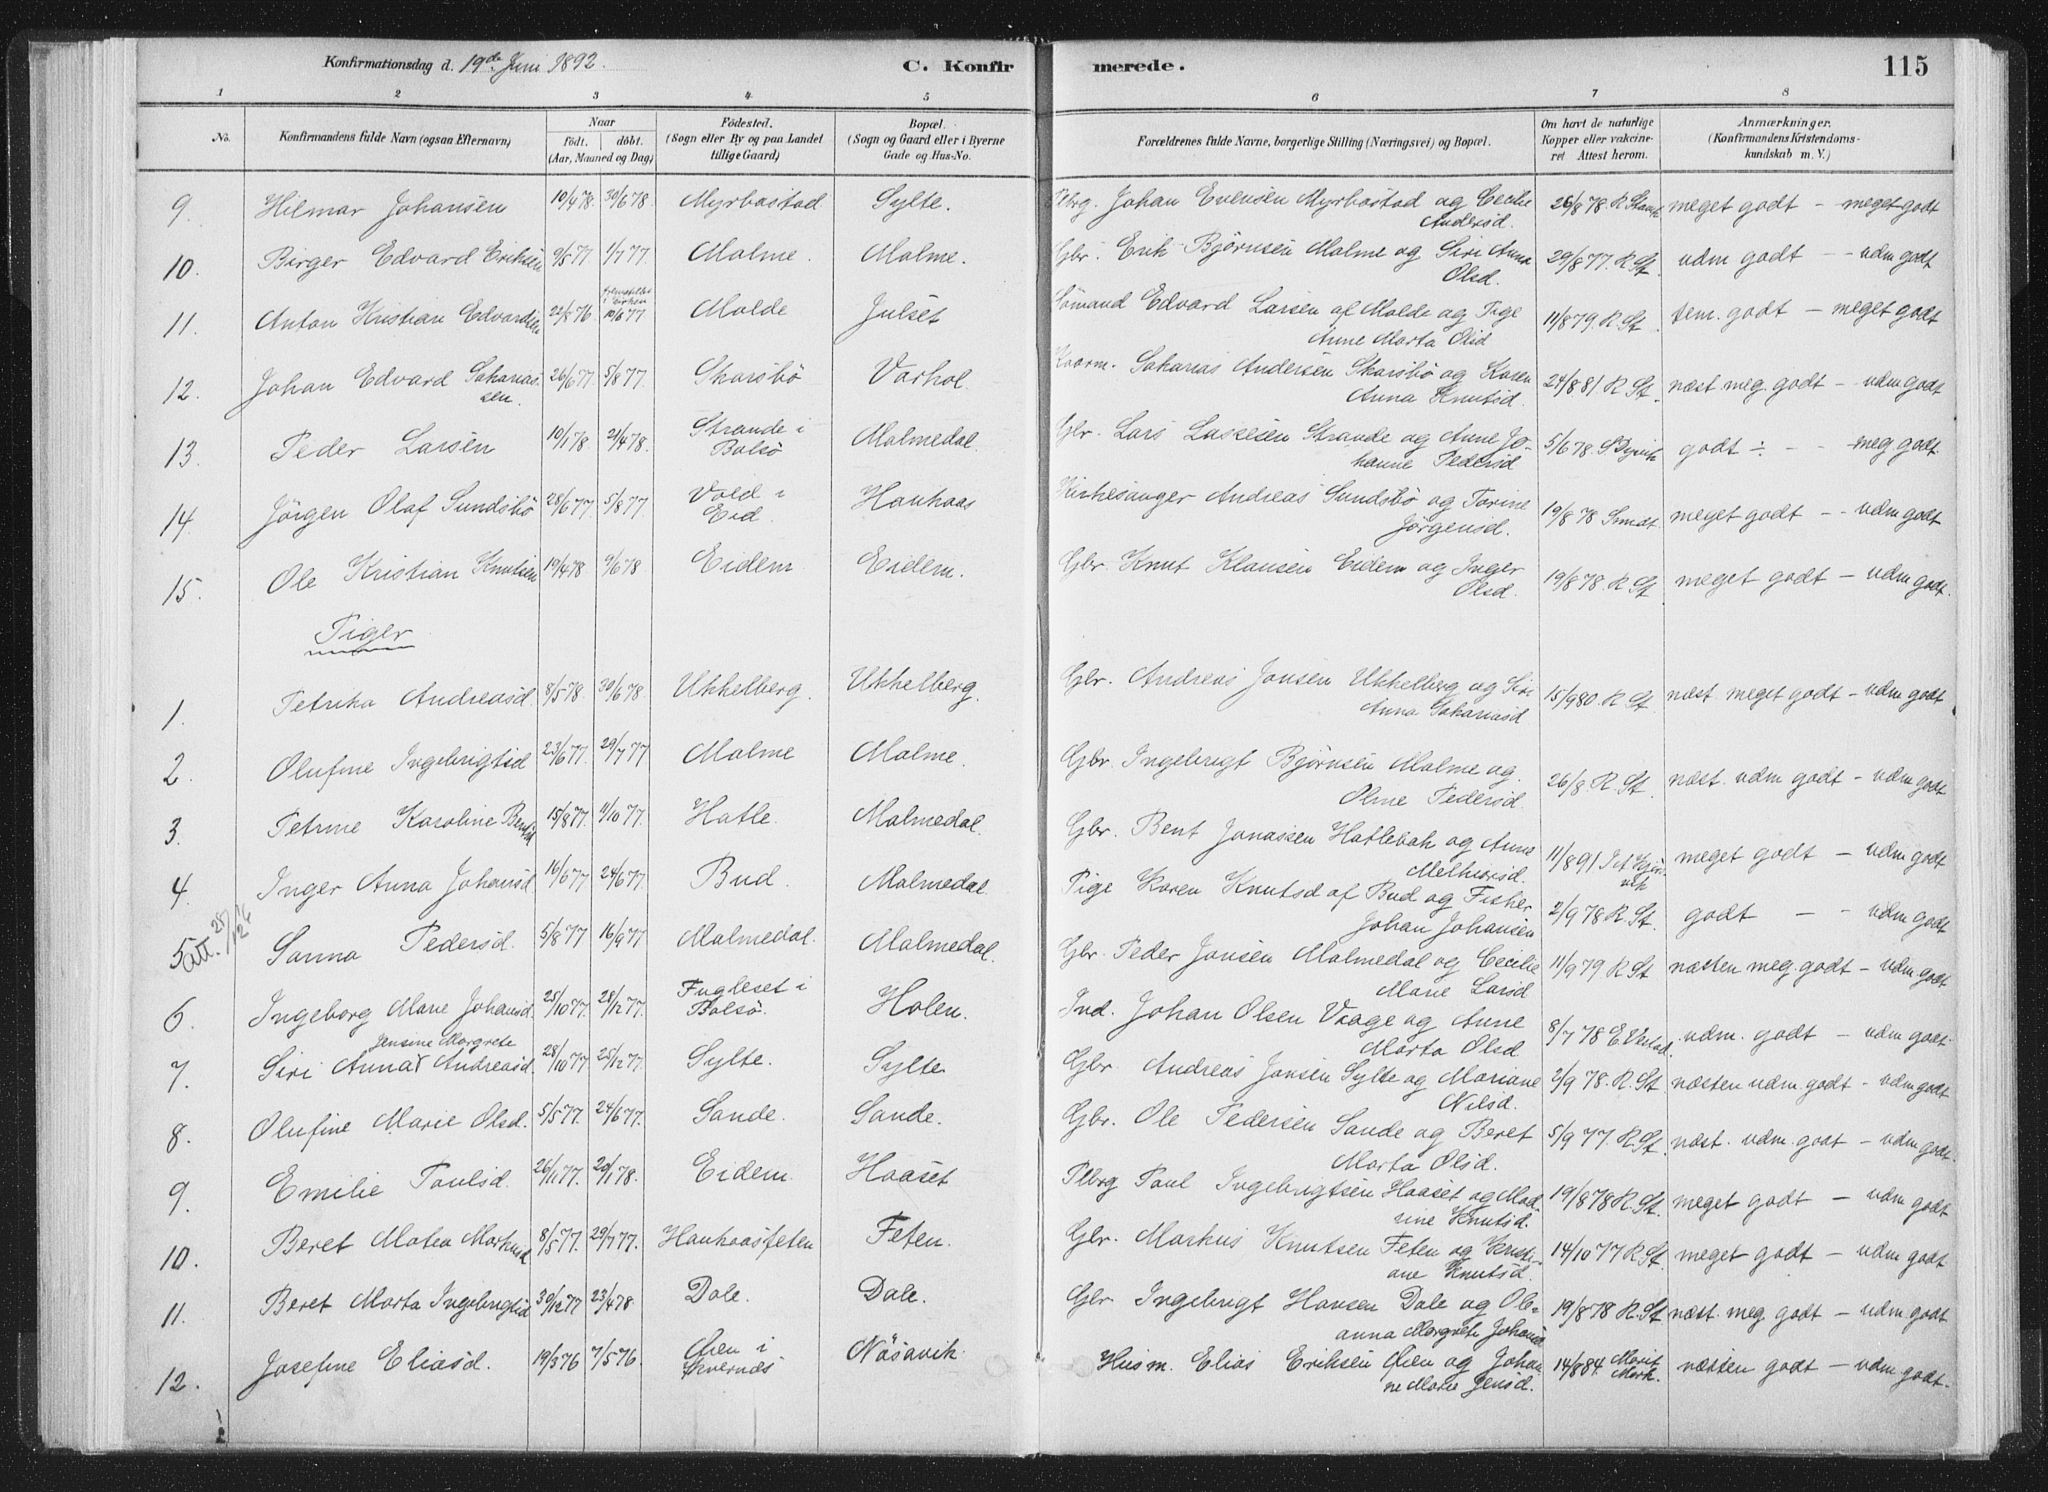 Konfirmationsdag d. 19de Juni 1892.
C. Konfirmerede.
115
1 2 3 4 5 6 7 8
No.
Konfirmandens fulde Navn (ogsaa Efternavn)
Naar
födt. döbt.
(Aar, Maaned og Dag)
Födested.
(Sogn eller By og paa Landet
tillige Gaard)
Bopæl.
(Sogn og Gaard eller i Byerne
Gade og Hus-No.
Forældrenes fulde Navne, borgerlige Stilling (Næringsvei) og Bopæl.
Om havt de naturlige
Kopper eller vakcine-
ret Attest herom.
Anmærkninger.
(Konfirmandens Kristendoms-
kundskab m. V.)
9. Hilmar Johansen 10/4 78. 30/6 78. Myrbostad Sylte. Plbrg. Johan Evensen Myrbostad og Cecilie 26/8 78. R. meget godt - meget godt
Andersd.
10. Birger Edvard Eriksen 9/5 77 1/7 77. Malme. Malme. Gbr. Erik Bjørnsen Malme og Siri Anna 29/8 77. R. St. udm godt - - udm godt
Olsd.
11. Anton Kristian Edvardsen 22/8 76 10/6 77 Molde Julset Sømand Edvard Larsen af Molde og Pige 11/8 79. R. St. tem. godt - meget godt
Anne Marta Olsd
12. Johan Edvard Sakarias- 26/6 77. 5/8 77. Skarsbö Varhol. Sakarias Andersen Skarsbö og Karen 24/8 81. R. St. næst meg. godt - - udm godt
sen. Anna Knutsd.
13. Peder Larsen 10/1 78. 21/4 78. Strande i Malmedal. Gbr. Lars Lassesen Strande og Anne Jo- 5/6 78. godt ÷ - - meg godt.
Bolsö hanne Pedersd
14. Jörgen Olaf Sundsbö 28/6 77. 5/8 77 Vold i Hauhaas Kirkesanger Andreas Sundsbö og Torine 19/8 78 Smdt. meget godt - - udm godt
Eid. Jörgensd.
15. Ole Kristian Knutsen 19/4 78 9/6 78. Eidem Eidem. Gbr. Knut Klausen Eidem og Inger 19/8 78. R. St. meget godt - udm godt.
Olsd.
Piger
1. Petrika Andreasd. 8/5 78. 30/6 78. Ukkelberg. Ukkelberg. Gbr. Andreas Jonsen Ukkelberg og Siri 15/9 80. R. St. næst meget godt - udm godt
Anna Sakariasd
2. Olufine Ingebrigtsd 23/6 77. 29/7 77 Malme Malme. Gbr. Ingebrigt Bjørnsen Malme og 26/8 R. St. næst. udm godt - udm godt
Oline Pedersd.
3. Petrine Karoline Bentsd 15/8 77. 11/10 77. Hatle. Malmedal. Gbr. Bent Jonassen Hatlebak og Anne 11/8 91 meget godt - udm godt
Melkiorsd.
4. Inger Anna Johansd 16/6 77 24/6 77. Bud. Malmedal. Pige Karen Knutsd af Bud og Fisker 2/9 78 R. St. godt - - udm godt
Johan Johansen
5 att. 28/12 26 Sanna Pedersd. 5/8 77 16/9 77 Malmedal. Malmedal. Gbr. Peder Jonsen Malmedal og Cecilie 11/9 79 R. St næsten meg. godt - udm godt
Marie Larsd
6. Ingeborg Marie Johansd. 25/10 77. 28/12 77. Fugleset i Holen. Ind. Johan Olsen Vaage og Anne 8/7 78 udm. godt - udm godt
Bolsö. Marta Olsd
Jensine Margrete
7. Siri Anna Andreasd. 28/10 77. 25/12 77. Sylte. Sylte Gbr. Andreas Jonsen Sylte og Mariane 2/9 78. R. St. næsten udm. godt - udm godt
Nilsd.
8. Olufine Marie Olsd. 5/5 77. 24/6 77. Sande. Sande. Gbr. Ole Pedersen Sande og Beret 5/9 77. R. St. næst. udm. godt - udm godt.
Marta Olsd.
9. Emilie Paulsd. 26/11 77. 20/1 78. Eidem. Haaset Plbrg Paul Ingebrigtsen Haaset og Mad- 19/8 78 R. St. meget godt - udm godt
rine Knutsd.
10. Beret Matea Markusd 8/5 77. 29/7 77. Hauhaasfeten Feten. Gbr. Markus Knutsen Feten og Kristi- 14/10 77 R. St. meget godt - udm godt
ane Knutsd.
11. Beret Marta Ingebrigtsd 30/12 77 23/4 78 Dale. Dale. Gbr Ingebrigt Hansen Dale og Ole- 19/8 78 R. St næst. meg godt - udm godt
anna Margrete Johansd
12. Josefine Eliasd. 19/3 76 7/5 76. Öien i Nösavik. Husm. Elias Eriksen Öien og Johan- 14/8 84. Marit næsten godt - udm godt.
Kvernæs ne Marie Jensd. Mork.